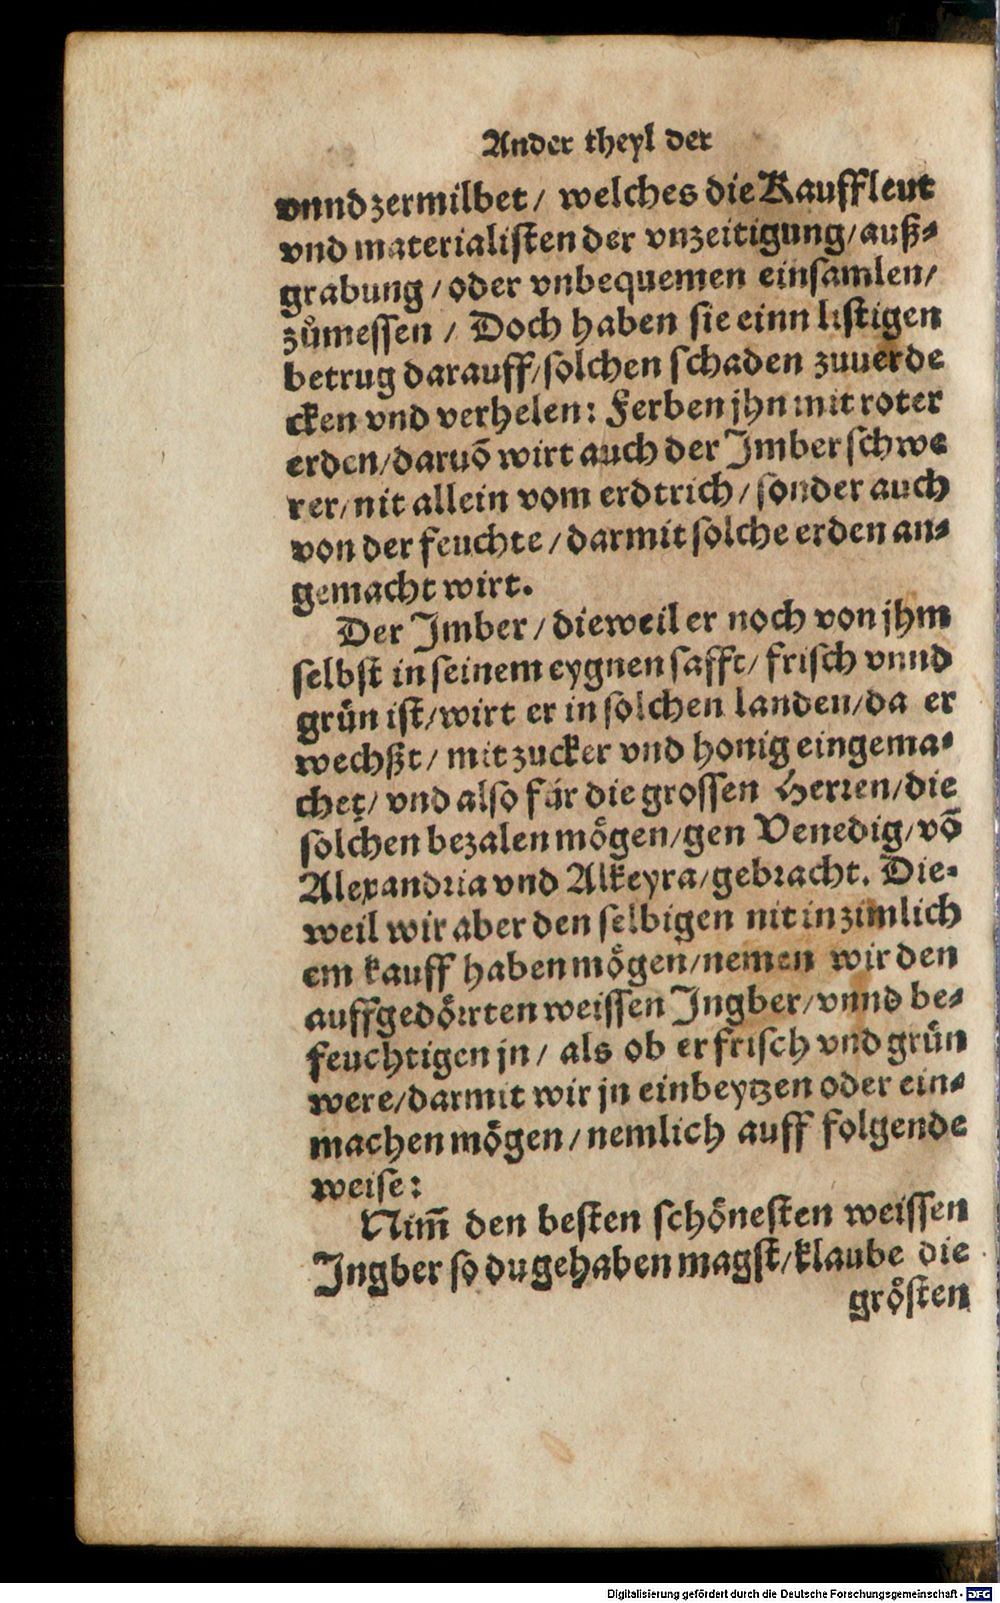 Ander theyl der
vnnd zermilbet / welches die Kauffleut
vnd materialisten der vnzeitigung / auß⸗
grabung / oder vnbequemen einsamlen /
zůmessen / Doch haben sie einn listigen
betrug darauff / solchen schaden zuuerde
cken vnd verhelen: Ferben jhn mit roter
erden / daruõ wirt auch der Jmber schwe
rer / nit allein vom erdtrich / sonder auch
von der feuchte / darmit solche erden an⸗
gemacht wirt.
Der Jmber / dieweil er noch von jhm
selbst in seinem eygnen safft / frisch vnnd
grün ist / wirt er in solchen landen / da er
wechßt / mit zucker vnd honig eingema⸗
chet / vnd also für die grossen Herren / die
solchen bezalen mögen / gen Venedig / võ
Alexandria vnd Alkeyra / gebracht. Die⸗
weil wir aber den selbigen nit in zimlich
em kauff haben mögen / nemen wir den
auffgedörrten weissen Jngber / vnnd be⸗
feuchtigen jn / als ob er frisch vnd grün
were / darmit wir jn einbeytzen oder ein⸗
machen mögen / nemlich auff folgende
weise:
Nim̃ den besten schönesten weissen
Jngber so du gehaben magst / klaube die
grösten
Digitalisierung gefördert durch die Deutsche Forschungsgemeinschaft - DFG